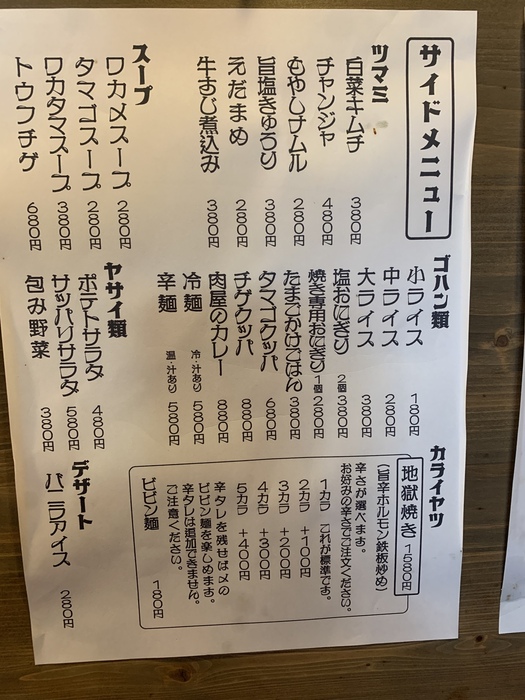 サイドメニュー
ツマミ
白菜キムチ 380円
チャンジャ 480円
もやしナムル 280円
旨塩きゅうり 380円
えだまめ 280円
牛すじ煮込み 380円
スープ
ワカメスープ 280円
タマゴスープ 280円
ワカタマスープ 380円
トウフチゲ 680円
ゴハン類
小ライス 180円
中ライス 280円
大ライス 380円
塩おにぎり 2個 380円
焼き専用おにぎり 1個 280円
たまごかけごはん 380円
タマゴクッパ 680円
チゲクッパ 880円
肉屋のカレー 880円
冷麺 冷・汁あり 580円
辛麺 温・汁あり 580円
ヤサイ類
ポテトサラタ 480円
サッパリサラタ 580円
包み野菜 380円
カライヤツ
地獄焼き 1580円
(旨辛ホルモン鉄板炒め)
辛さが選べます。
お好みの辛さでご注文ください。
1カラ これが標準です。
2カラ +100円
3カラ +200円
4カラ +300円
5カラ +400円
辛タレを残せば〆の
ビビン麺を楽しめます。
辛タレは追加できません。
ご注意ください。
ビビン麺 180円
デザート
バニラアイス 280円